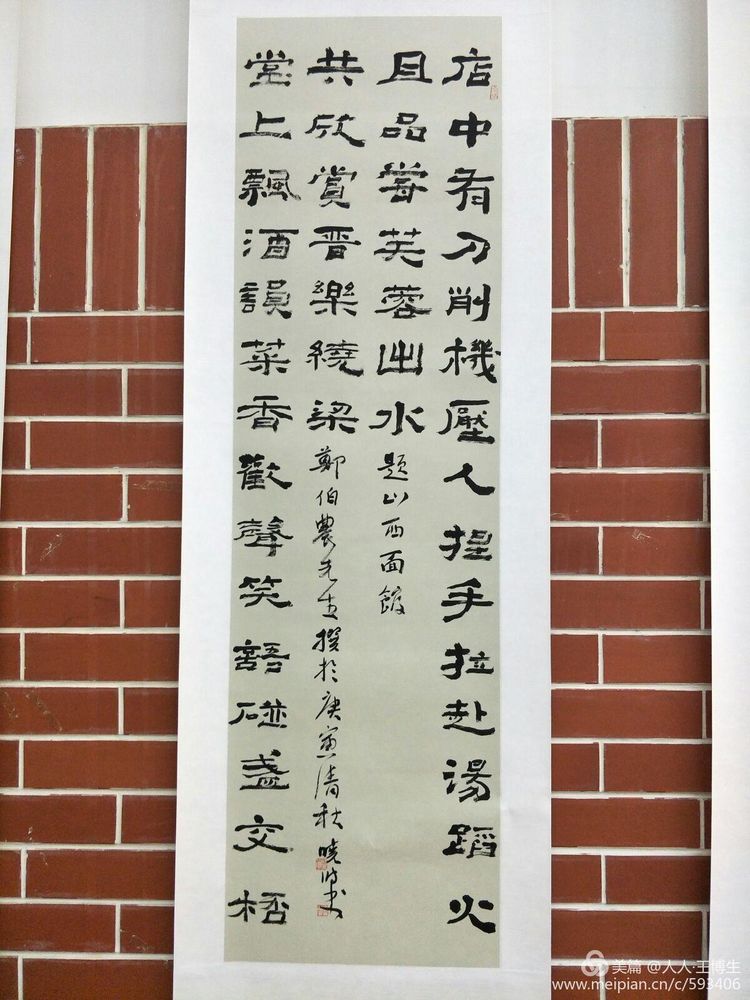 店中有刀削機壓人捏手拉赴湯蹈火
且品嘗芙蓉出水
堂上飄酒韻菜香歡聲笑語碰盞交桮
共欣賞晋樂繞梁
题山西面館
鄭伯農先生撰於庚寅清秋 曉时书
美篇 @人人·王博生
www.meipian.cn/c/593406